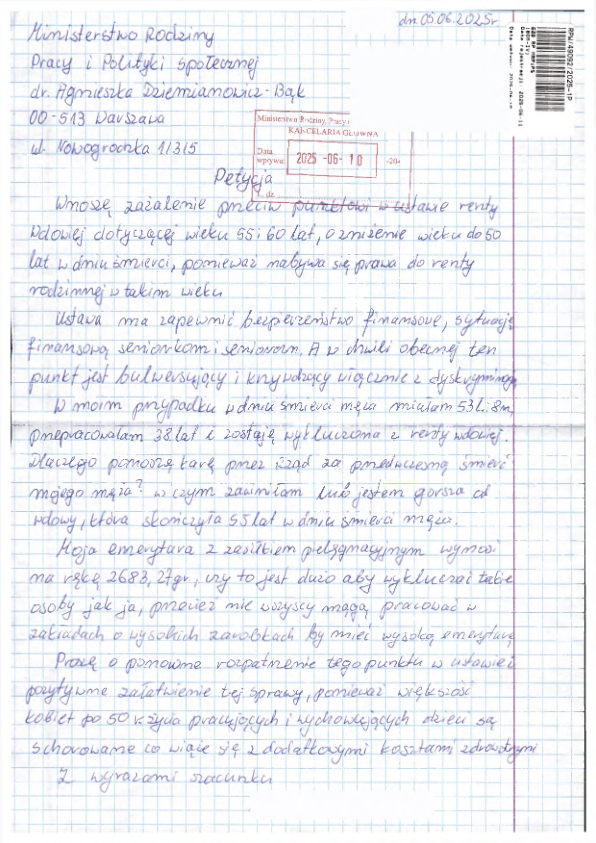 dn. 05.06.2025r
Ministerstwo Rodziny
Pracy i Polityki Społecznej
dr. Agnieszka Dziemianowicz-Bąk
00-513 Warszawa
ul. Nowogrodzka 1/3/5
RPW/49092/2025-1P
Data rejestracji: 2025-06-11
Data wpływu: 2025-06-10
Ministerstwo Rodziny, Pracy i
KANCELARIA GŁÓWNA
Data
wpływu
2025 -06- 10
-20-
Petycja
Wnoszę zażalenie przeciw punktowi w ustawie renty
wdowiej dotyczącej wieku 55 i 60 lat, o zniżenie wieku do 50
lat w dniu śmierci, ponieważ nabywa się prawa do renty
rodzinnej w takim wieku
Ustawa ma zapewnić bezpieczeństwo finansowe, sytuację
finansową seniorkom i seniorom. A w chwili obecnej ten
punkt jest bulwersujący i krzywdzący włącznie z dyskryminacją
W moim przypadku w dniu śmierci męża miałam 53 l i 8 m,
przepracowałam 38 lat i zostaję wykluczona z renty wdowiej.
Dlaczego ponoszę karę przez rząd za przedwczesną śmierć
mojego męża? w czym zawiniłam lub jestem gorsza od
wdowy, która skończyła 55 lat w dniu śmierci męża.
Moja emerytura z zasiłkiem pielęgnacyjnym wynosi
na rękę 2683,27gr, czy to jest dużo aby wykluczać takie
osoby jak ja, przecież nie wszyscy mogą pracować w
zakładach o wysokich zarobkach by mieć wysoką emeryturę
Proszę o ponowne rozpatrzenie tego punktu w ustawie i
pozytywne załatwienie tej sprawy, ponieważ większość
kobiet po 50 r. życia pracujących i wychowujących dzieci są
schorowane co wiąże się z dodatkowymi kosztami zdrowotnymi
Z wyrazami szacunku